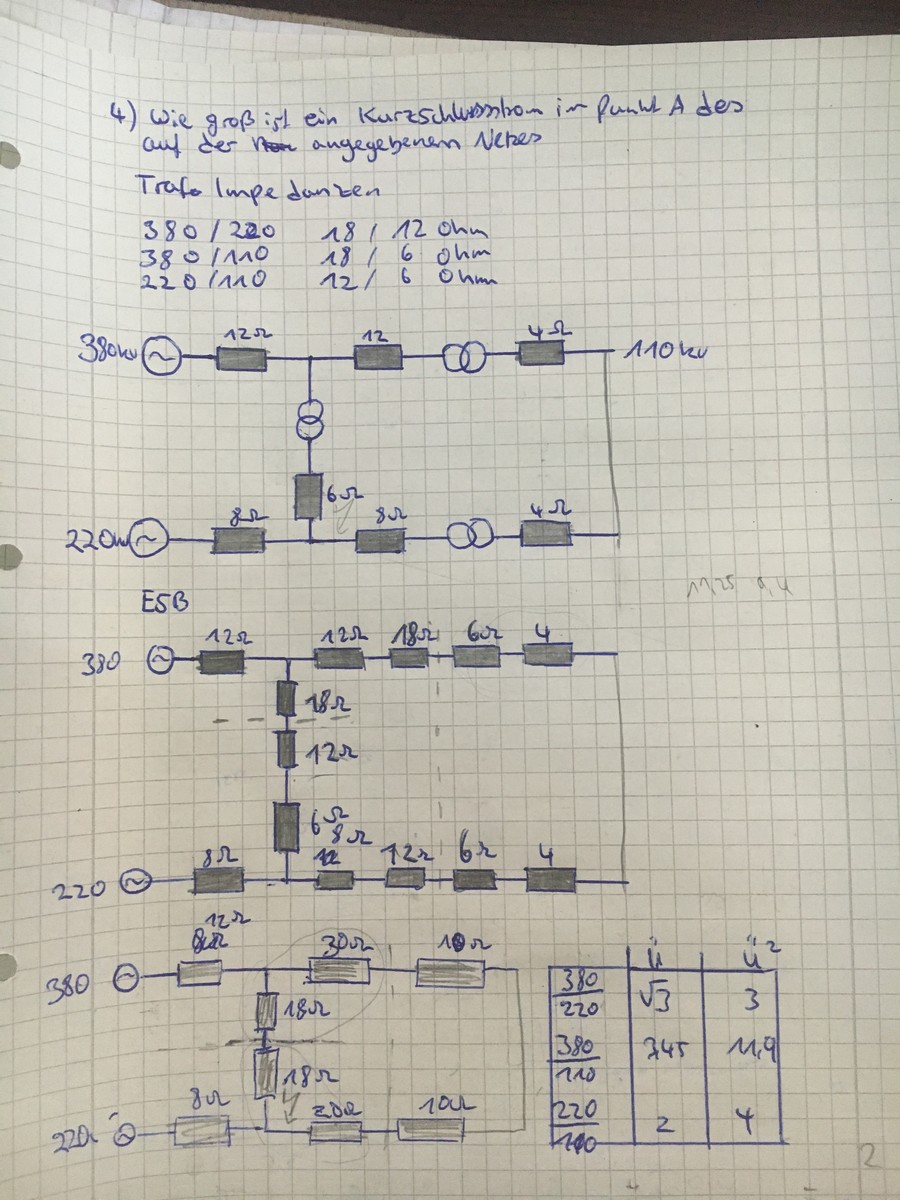 4) Wie groß ist ein Kurzschlussstrom im Punkt A des
auf der angegebenem Netzes
Trafo Impedanzen
380 / 220 18 / 12 Ohm
380 / 110 18 / 6 Ohm
220 / 110 12 / 6 Ohm
12Ω 12 4Ω
380kV ~ 110kV
6Ω
8Ω 8Ω 4Ω
220kV ~
11,25
ESB
12Ω 12Ω 18Ω 6Ω 4
380 ~
18Ω
12Ω
6Ω
8Ω 8Ω 12Ω 6Ω 4
220 ~
12Ω 30Ω 10Ω
380 ~
18Ω
18Ω
8Ω 20Ω 10Ω
220 ~
ü ü²
380/220 √3 3
380/110 3,45 11,9
220/110 2 4
2